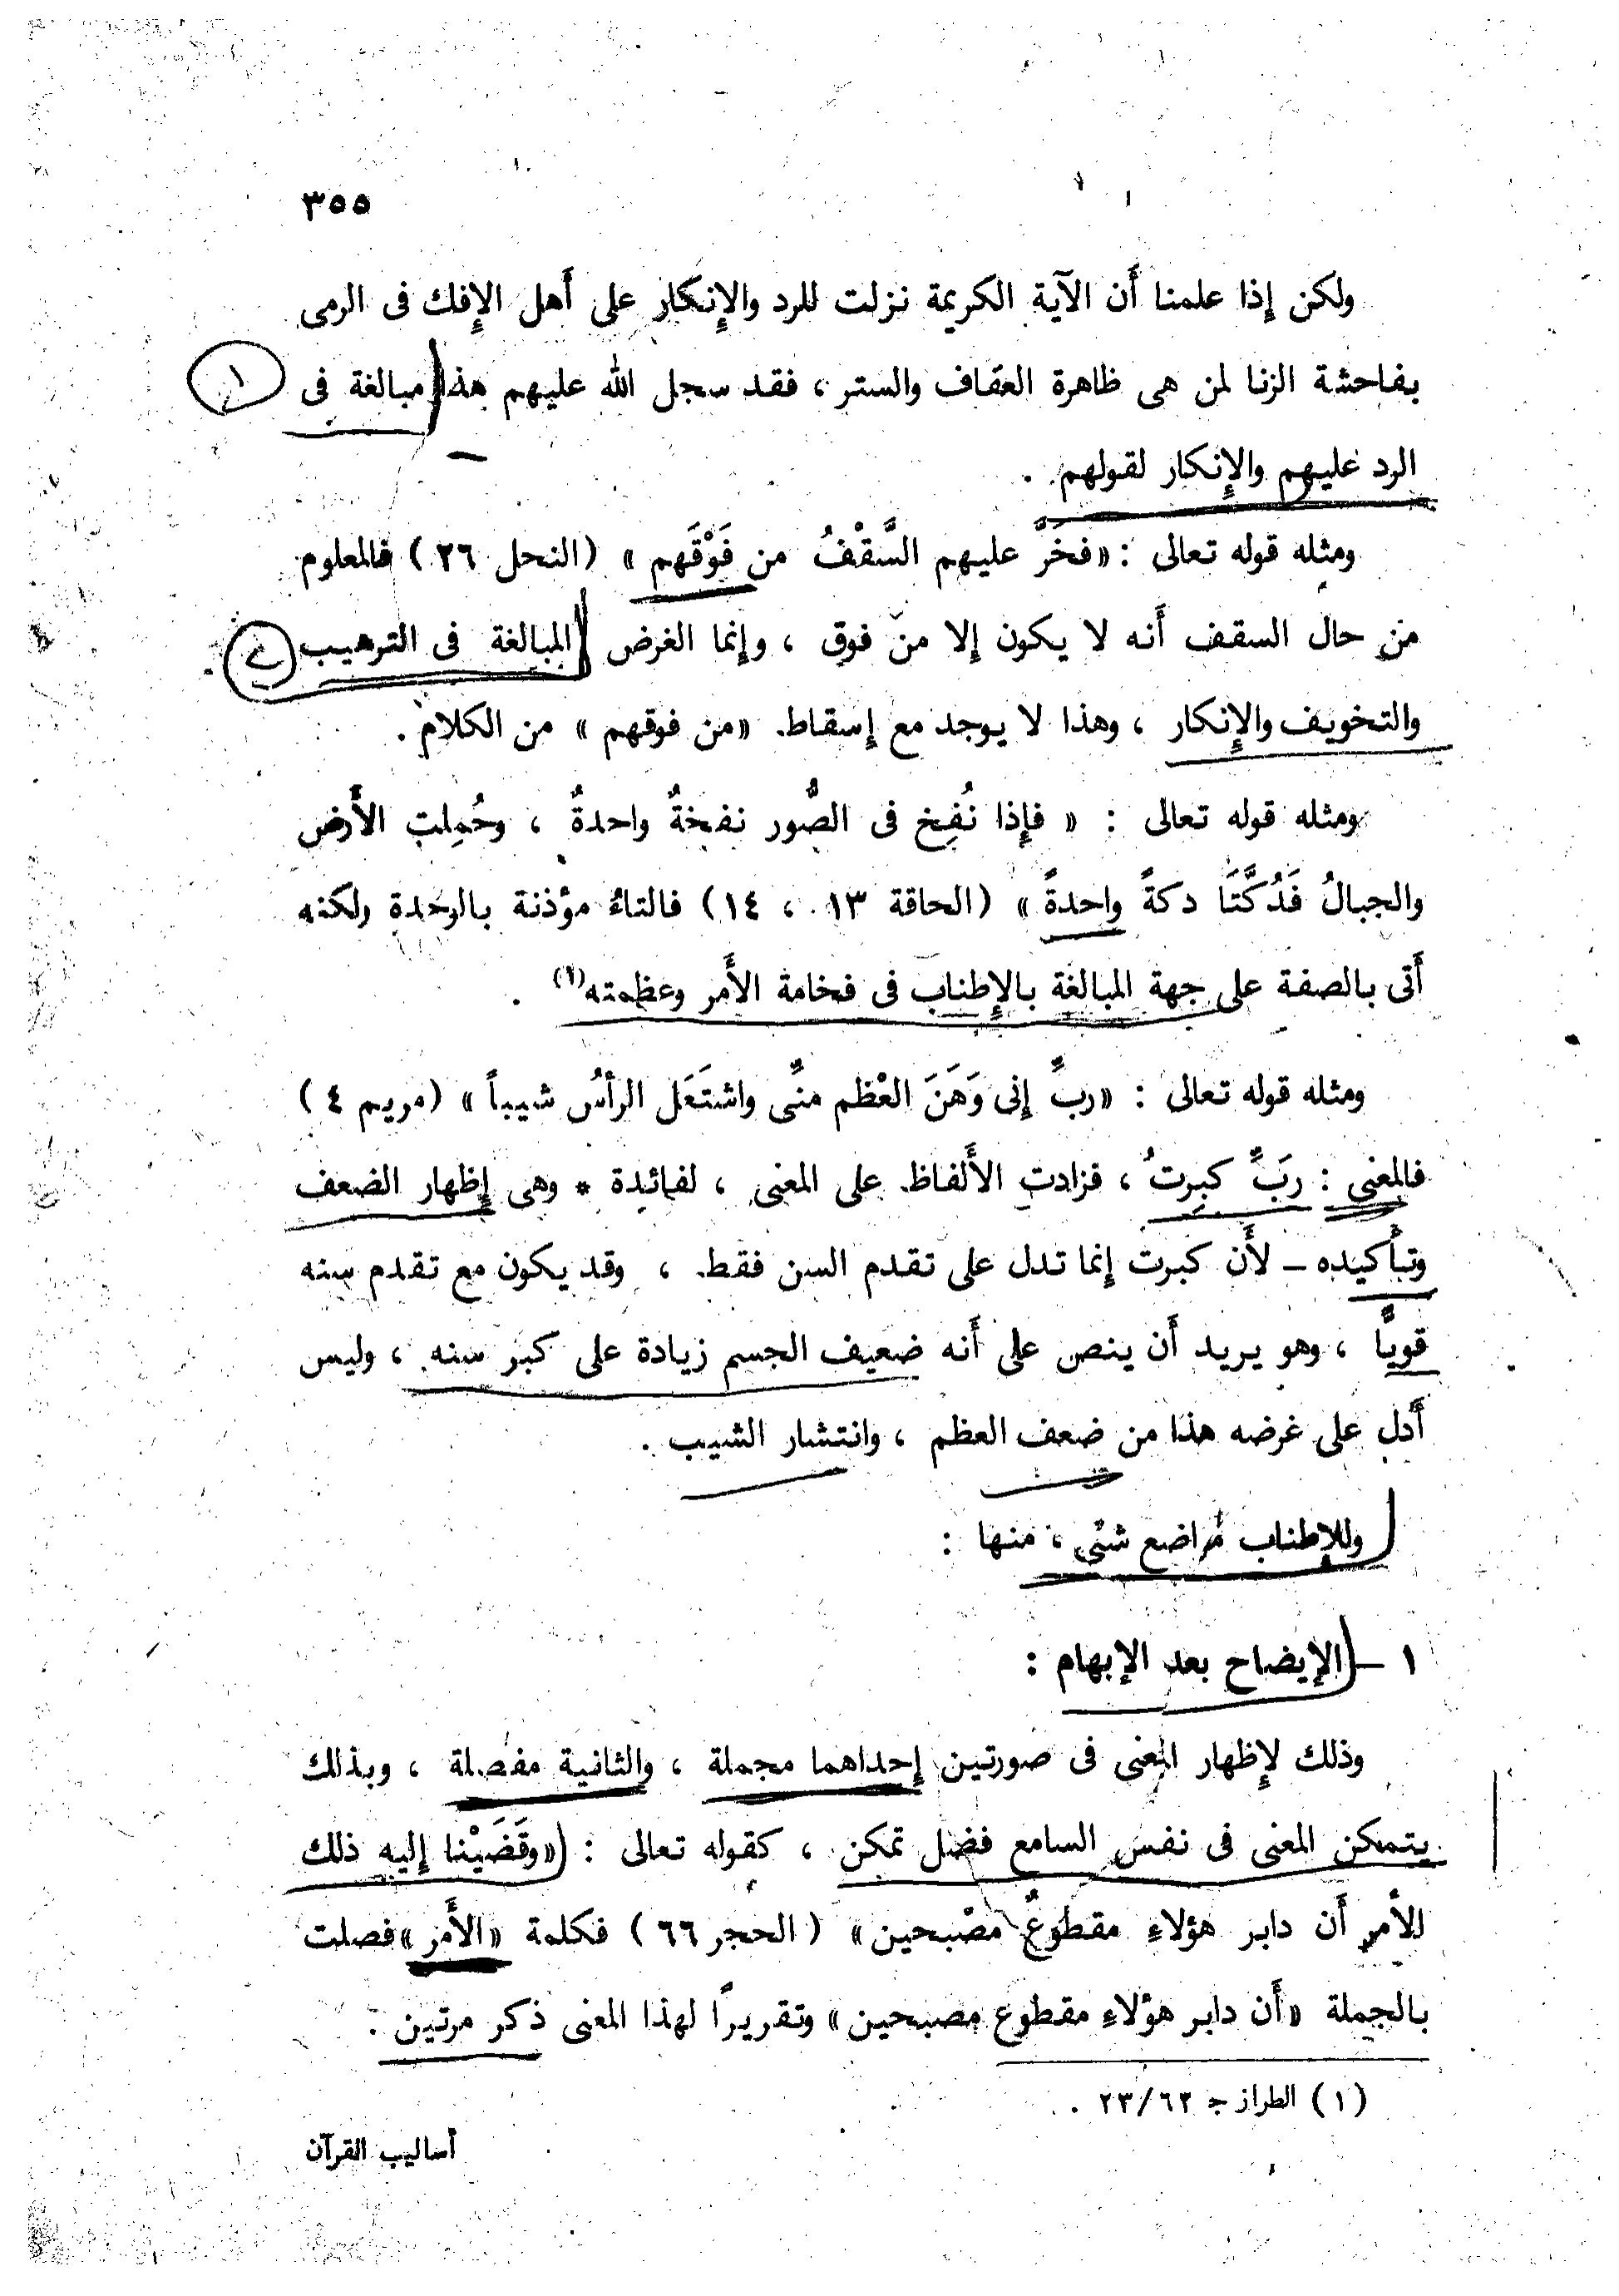 ٣٥٥
ولكن إذا علمنا أن الآية الكريمة نزلت للرد والإنكار على أهل الإفك فى الرمى
بفاحشة الزنا لمن هى ظاهرة العفاف والستر ، فقد سجل الله عليهم هذا مبالغة فى ١
الرد عليهم والإنكار لقولهم .
ومثله قوله تعالى : «فخَرَّ عليهم السَّقْفُ من فَوْقَهم » (النحل ٢٦ ) فالمعلوم
من حال السقف أنه لا يكون إلا من فوق ، وإنما الغرض المبالغة فى الترهيب ٢
والتخويف والإنكار ، وهذا لا يوجد مع إسقاط «من فوقهم » من الكلام .
ومثله قوله تعالى : « فإذا نُفِخ فى الصُّور نفخةٌ واحدةٌ ، وحُمِلت الأرض
والجبالُ فَدُكَّتَا دكةً واحدةً » (الحاقة ١٣ ، ١٤) فالتاءُ مؤذنة بالوحدة ولكنه
أتى بالصفة على جهة المبالغة بالإطناب فى فخامة الأمر وعظمته(١) .
ومثله قوله تعالى : «ربِّ إنى وَهَنَ العْظم منِّى واشتَعَل الرأسُ شيباً » (مريم ٤ )
فالمعنى : ربَِّ كبِرتُ ، فزادت الألفاظ على المعنى ، لفائدة * وهى إظهار الضعف
وتأكيده – لأن كبرت إنما تدل على تقدم السن فقط ، وقد يكون مع تقدم سنه
قويًّا ، وهو يريد أن ينص على أنه ضعيف الجسم زيادة على كبر سنه ، وليس
أدل على غرضه هذا من ضعف العظم ، وانتشار الشيب .
وللإطناب مواضع شتى ، منها :
١ – الإيضاح بعد الإبهام :
وذلك لإظهار المعنى فى صورتين إحداهما مجملة ، والثانية مفصلة ، وبذلك
يتمكن المعنى فى نفس السامع فضل تمكن ، كقوله تعالى : «وقَضَيْنا إليه ذلك
الأمر أن دابر هؤلاءِ مقطوعٌ مصْبحين» (الحجر ٦٦ ) فكلمة «الأمر» فصلت
بالجملة «أن دابر هؤلاءِ مقطوع مصبحين» وتقريرًا لهذا المعنى ذكر مرتين .
(١) الطراز ج ٢٣/٦٢ .
أساليب القرآن